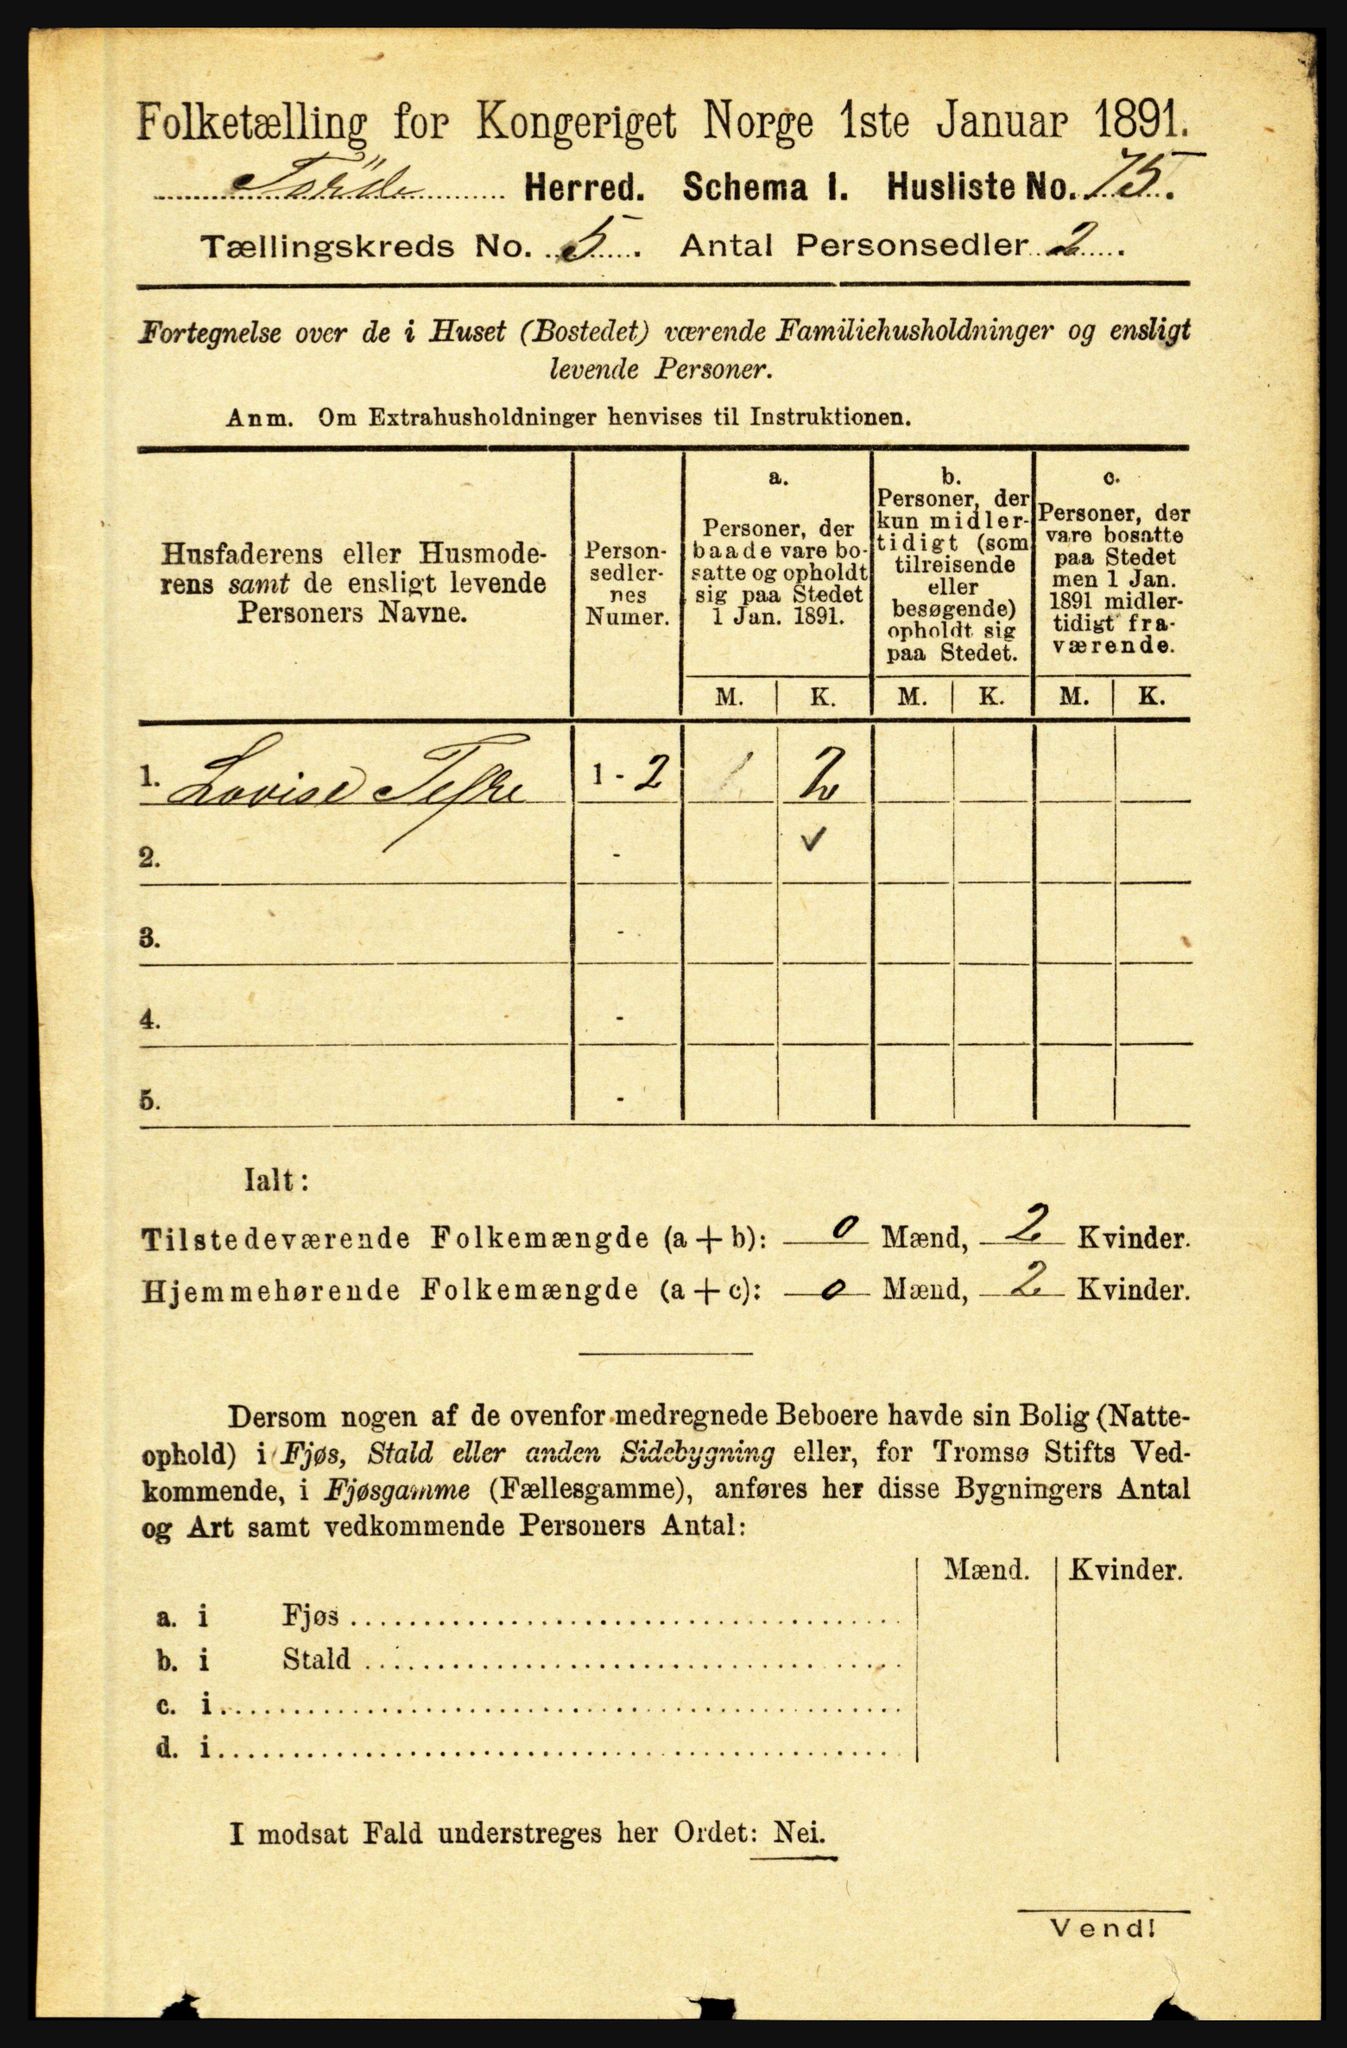 Folketælling for Kongeriget Norge 1ste Januar 1891.
Förde Herred. Schema I. Husliste No. 75.
Tællingskreds No. 5. Antal Personsedler 2.
Fortegnelse over de i Huset (Bostedet) værende Familiehusholdninger og ensligt
levende Personer.
Anm. Om Extrahusholdninger henvises til Instruktionen.
Husfaderens eller Husmode-
rens samt de ensligt levende
Personers Navne.
Person-
sedler-
nes
Numer.
a.
Personer, der
baade vare bo-
satte og opholdt
sig paa Stedet
1 Jan. 1891.
b.
Personer, der
kun midler-
tidigt (som
tilreisende
eller
besøgende)
opholdt sig
paa Stedet.
c.
Personer, der
vare bosatte
paa Stedet
men 1 Jan.
1891 midler-
tidigt fra-
værende.
M. K. M. K. M. K.
1. Lovise 1 - 2 1 2
2. - ✓
3. -
4. -
5. -
Ialt:
Tilstedeværende Folkemængde (a + b): 0 Mænd, 2 Kvinder.
Hjemmehørende Folkemængde (a + c): 0 Mænd, 2 Kvinder.
Dersom nogen af de ovenfor medregnede Beboere havde sin Bolig (Natte-
ophold) i Fjøs, Stald eller anden Sidebygning eller, for Tromsø Stifts Ved-
kommende, i Fjøsgamme (Fællesgamme), anføres her disse Bygningers Antal
og Art samt vedkommende Personers Antal:
Mænd. Kvinder.
a. i Fjøs
b. i Stald
c. i
d. i
I modsat Fald understreges her Ordet: Nei.
Vend!